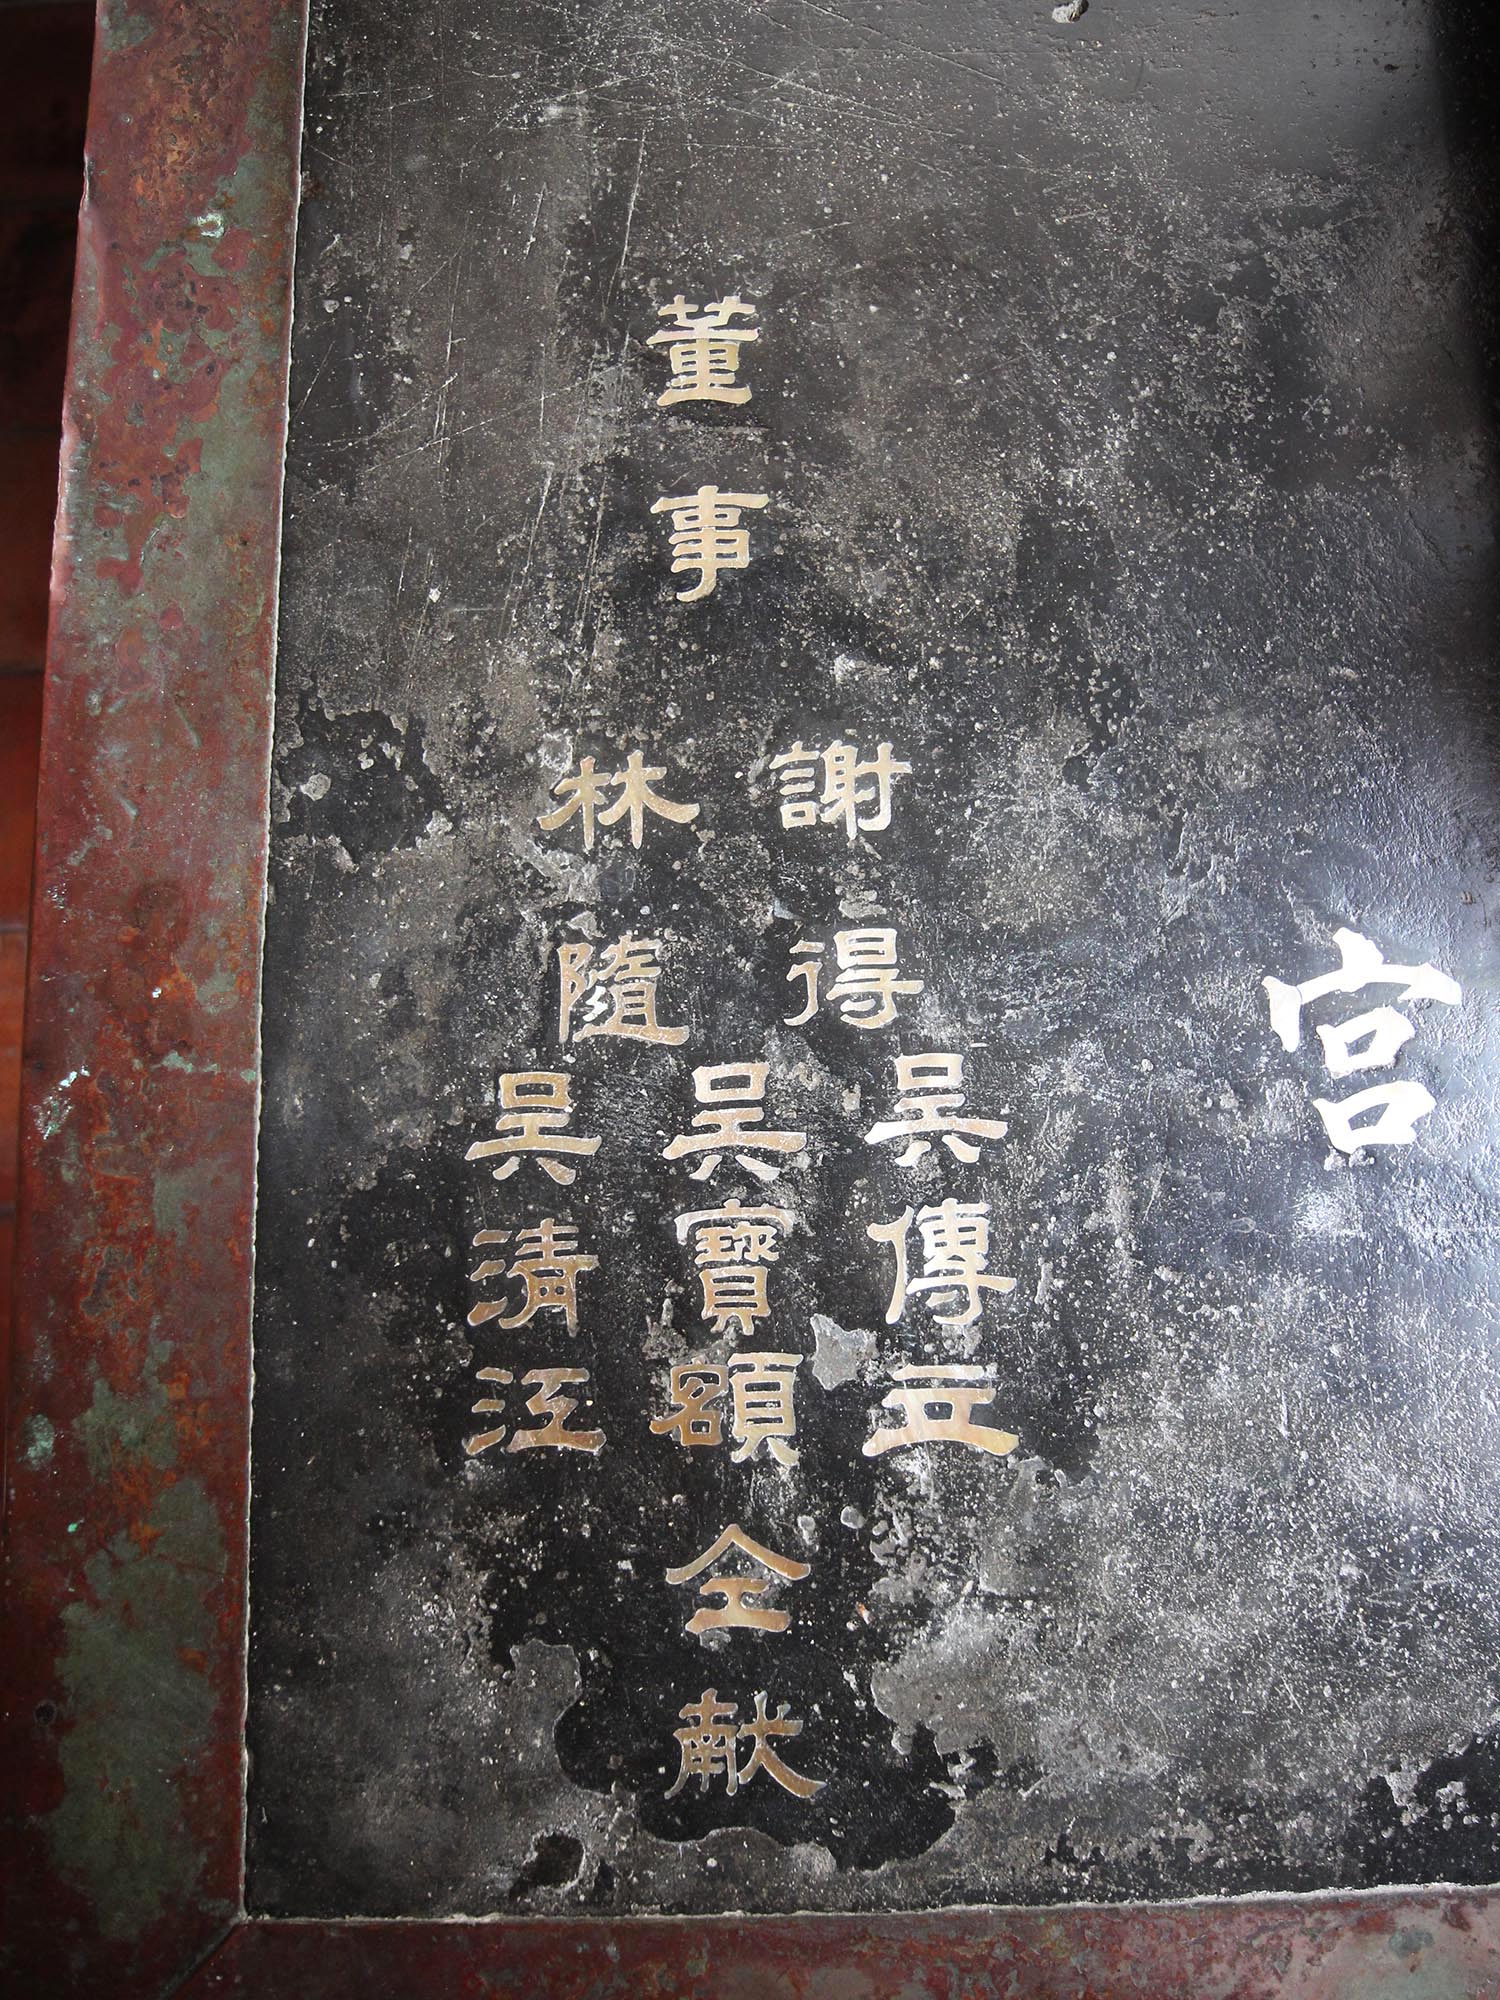 宮
董事
謝得
林隨
吳傳立
吳寶額
吳清江
仝献